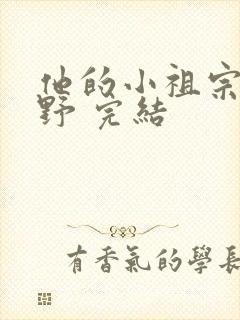 他的小祖宗
野 完結
有香氣的學長